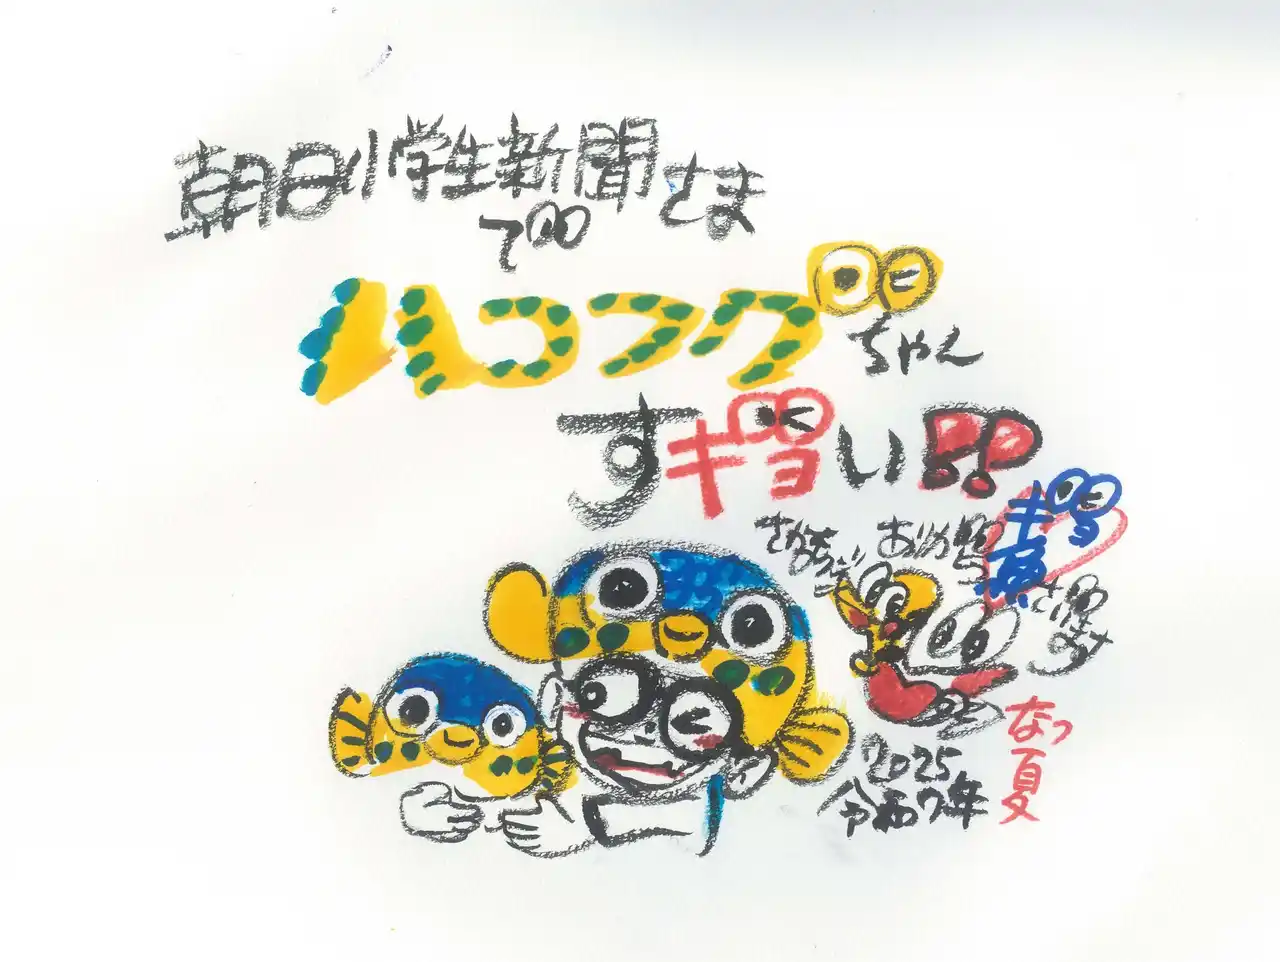 朝日小学生新聞さま
で
ハコフグちゃん
すギョい!!
ありがとう
ギョ魚
ざいます
なつ
夏
2025
令和7年